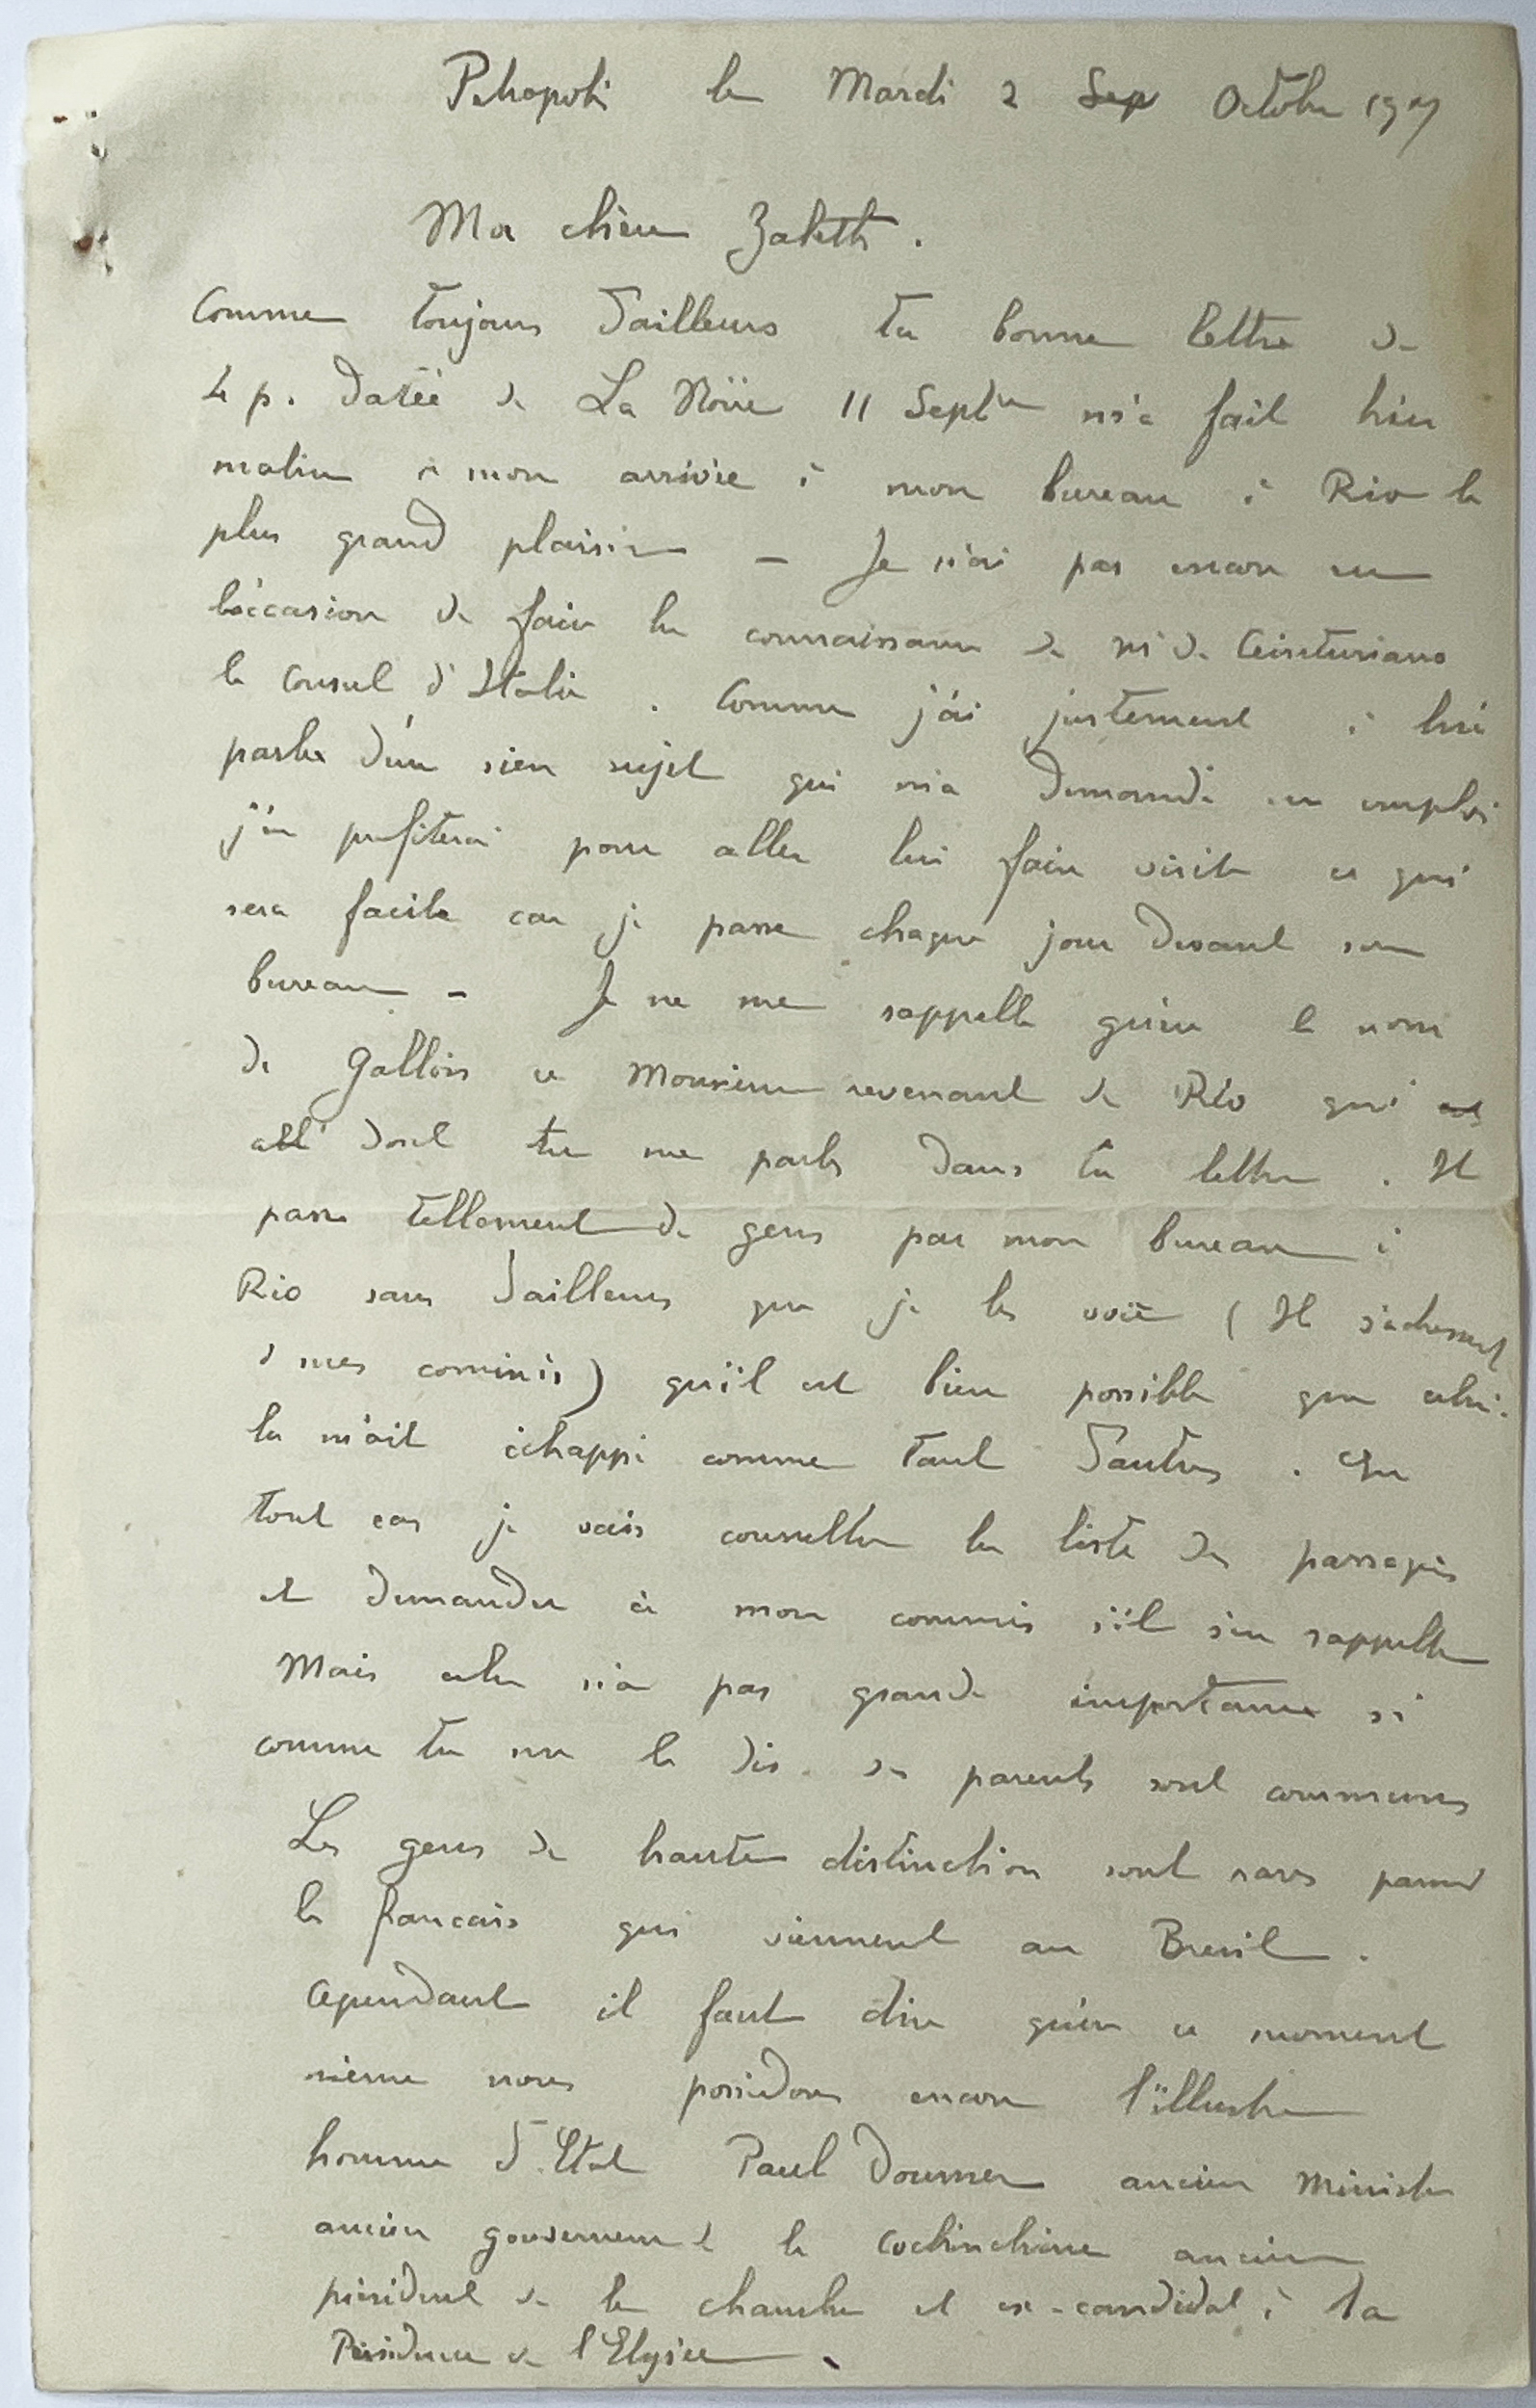 Petropolis le Mardi 2 Sep Octobre 1907
Ma chère Zabeth.
Comme toujours d'ailleurs ta bonne lettre de
4 p. datée de La Noüe 11 Septbre m'a fait hier
matin à mon arrivée à mon bureau à Rio le
plus grand plaisir — Je n'ai pas encore eu
l'occasion de faire la connaissance de Mr de
le Consul d'Italie. Comme j'ai justement à lui
parler d'un sien sujet qui m'a demandé un emploi
j'en profiterai pour aller lui faire visite ce qui
sera facile car je passe chaque jour devant son
bureau — Je ne me rappelle guère le nom
de Gallois ce Monsieur revenant de Rio qui est
allé dont tu me parles dans ta lettre. Il
passe tellement de gens par mon bureau à
Rio sans d'ailleurs que je les voie (Ils s'adressent
à mes commis) qu'il est bien possible que celui-
la m'ait échappé comme tant d'autres. En
tout cas je vais consulter la liste des passagers
et demander à mon commis s'il s'en rappelle
Mais cela n'a pas grande importance si
comme tu me le dis ses parents sont communs
Les gens de haute distinction sont rares parmi
les francais qui viennent au Bresil.
Cependant il faut dire qu'en ce moment
même nous possédons encore l'illustre
homme d'Etat Paul Doumer ancien Ministre
ancien gouverneur de la Cochinchine ancien
président de la chambre et ex-candidat à la
Présidence de l'Elysée.